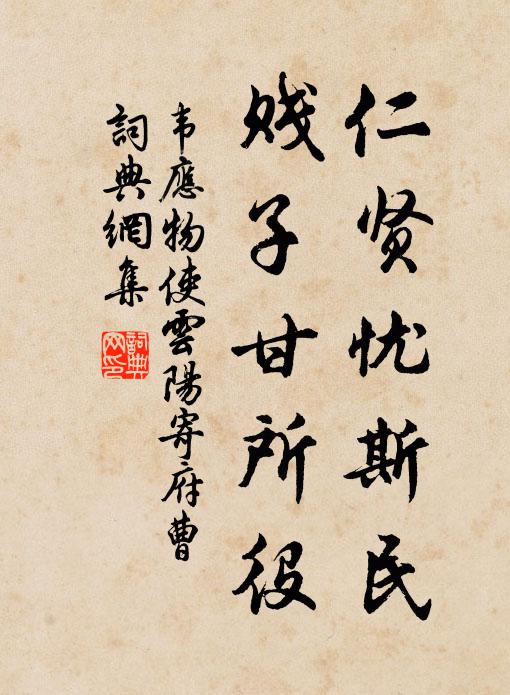 仁贤忧斯民
贱子甘所役
韦應物使雲陽寄府曹
詞典網集
詞典網印